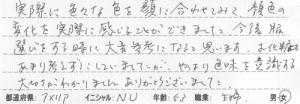 実際に色々な色を顔に合わせてみて、顔色の
変化を実際に感じることができました。今後服
選びをする時に大変参考になると思います。お化粧は
あまり考えずにしていましたが、やはり色味を意識する
大切さがわかりました。ありがとうございました。
都道府県：アメリカ イニシャル：NU 年齢： 職業：主婦 男・女